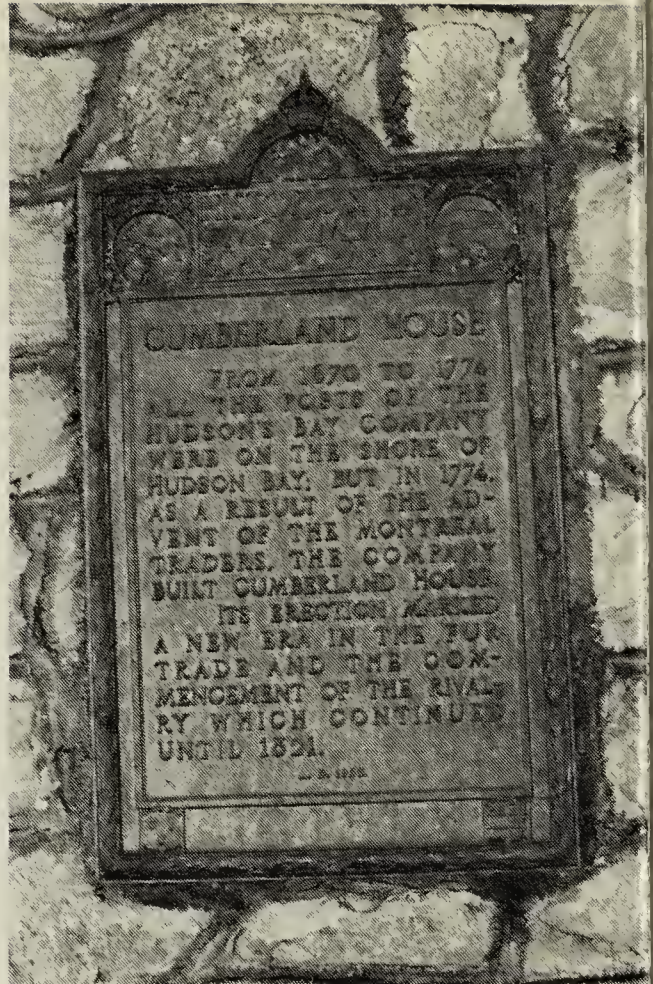 CUMBERLAND HOUSE
FROM 1670 TO 1774
ALL THE POSTS OF THE
HUDSON'S BAY COMPANY
WERE ON THE SHORE OF
HUDSON BAY; BUT IN 1774,
AS A RESULT OF THE AD-
VENT OF THE MONTREAL
TRADERS, THE COMPANY
BUILT CUMBERLAND HOUSE
ITS ERECTION MARKED
A NEW ERA IN THE FUR
TRADE AND THE COM-
MENCEMENT OF THE RIVAL-
RY WHICH CONTINUED
UNTIL 1821.